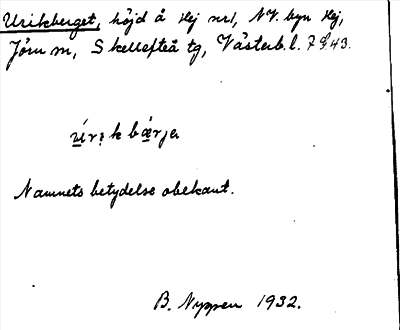 Urikberget, höjd å Hej nr1, NV. byn Hej,
Jörn sn, Skellefteå tg, Västerb. l. 7 43.
úrik bǽrjə
Namnets betydelse obekant.
B. Nyppen 1932.